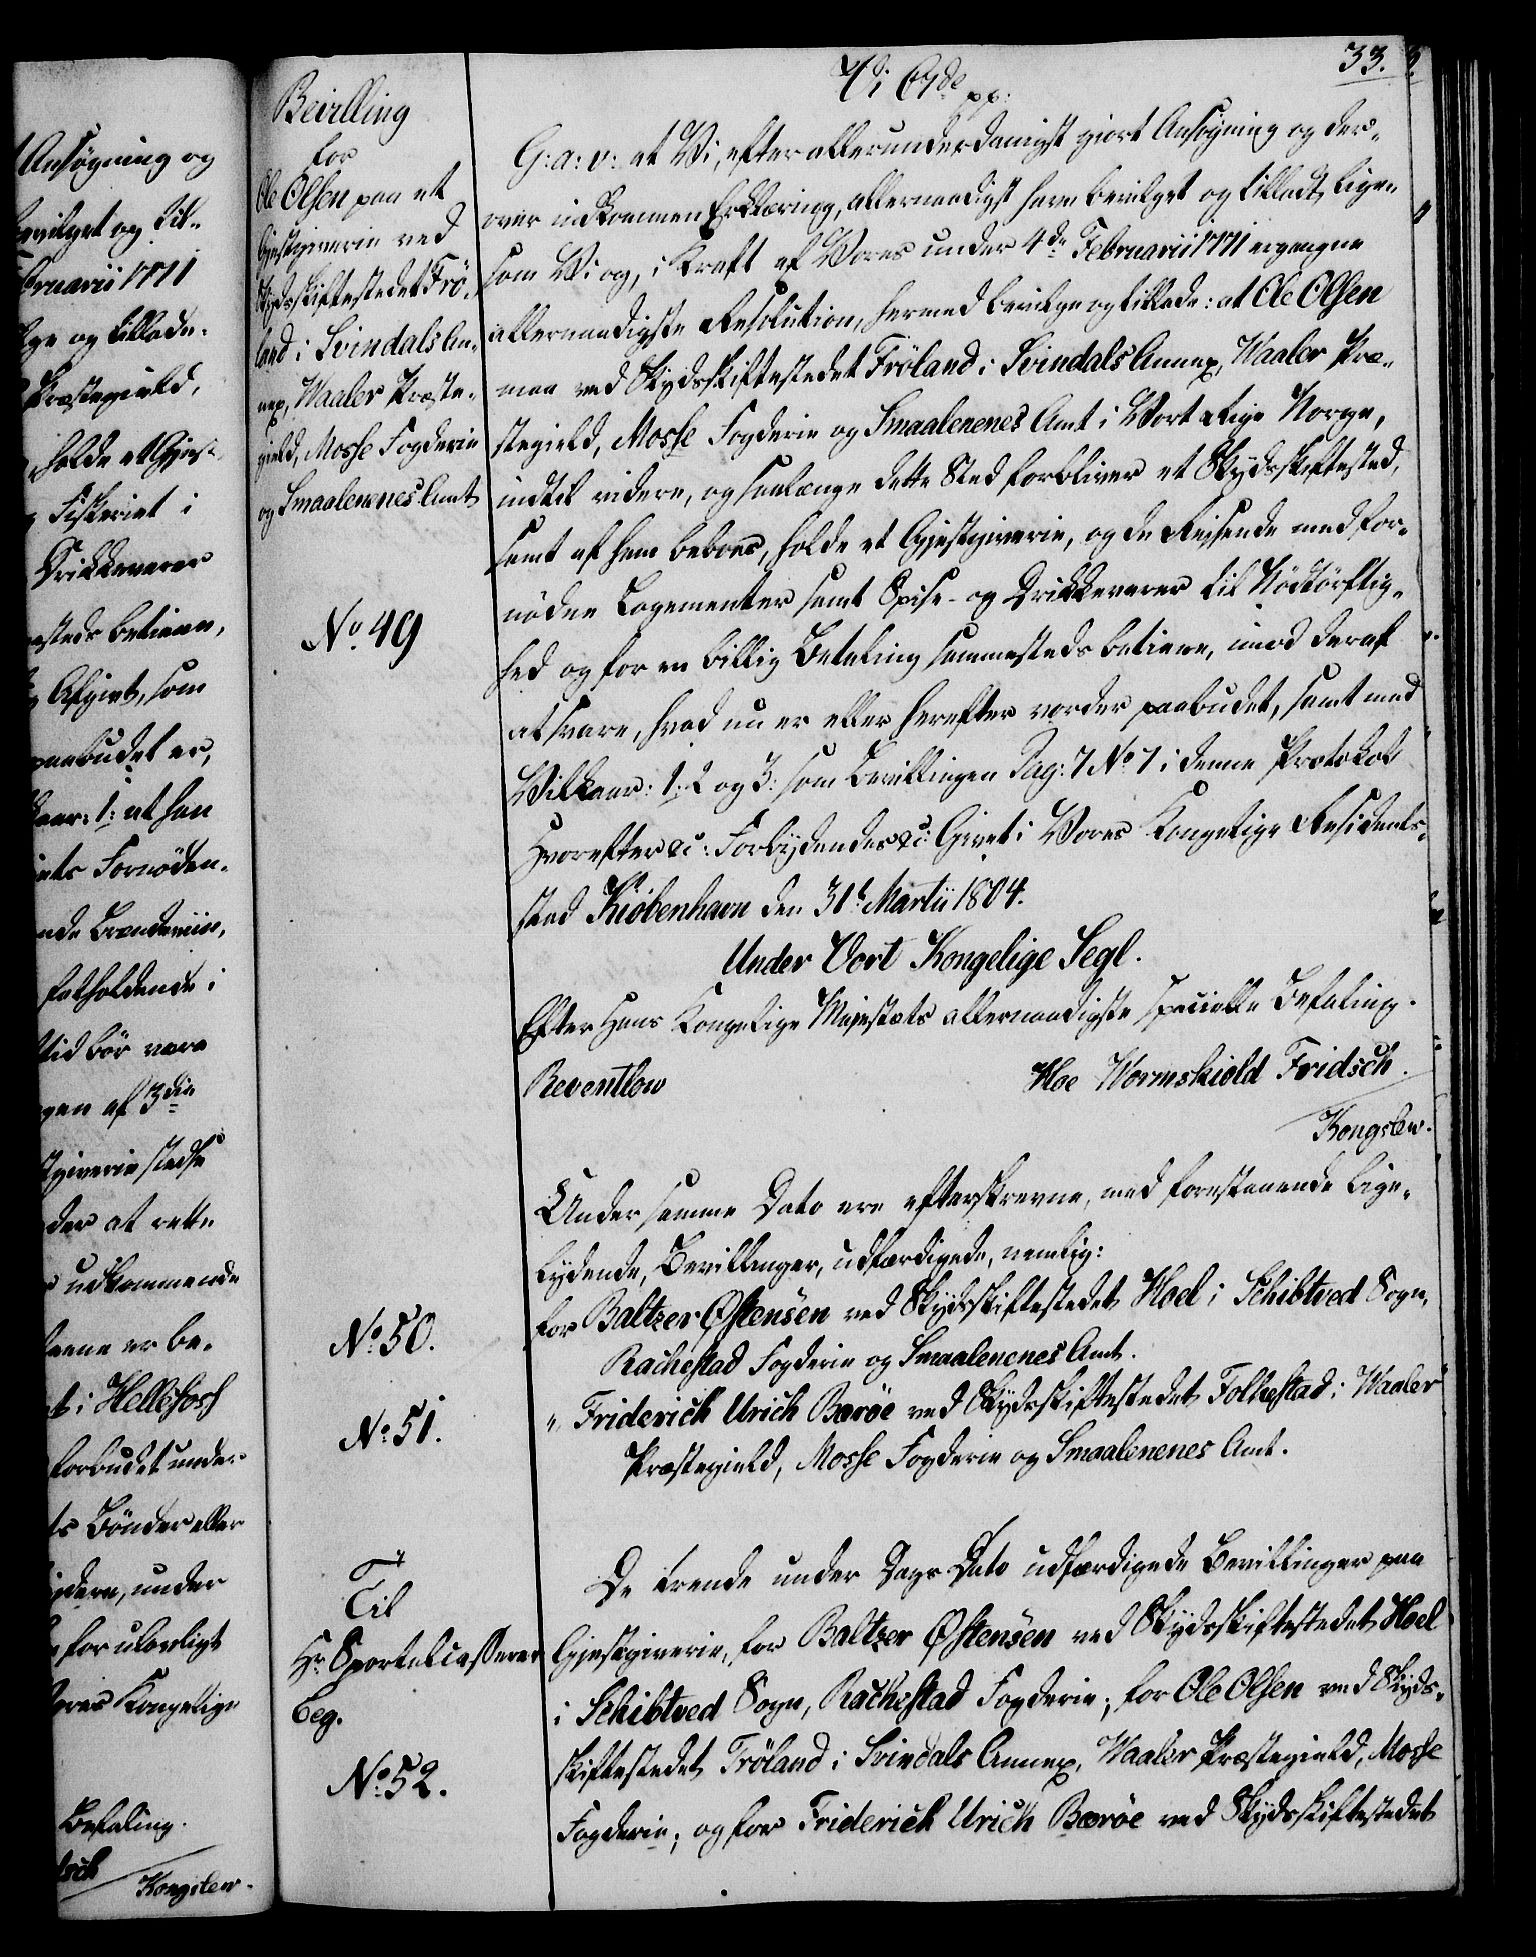 Ansøgning og
bevilget og til-
Februarii 1771
lge og tillade.
Præstegield,
holde et Gjæst-
Fiskeriet i
Drikkevarer
mesteds betiene,
Afgivt, som
paabudet er,
kaar: 1: at han
ets Fornöden-
ende Brændeviin,
falholdende i
tid bör være
gen af 3die
stgiverie stedse
der at rette
udkommende
erne er be-
t i Hellefoss
forbudet under
ts Bönder eller
ydere, under
for ulovligt
ores Kongelige
Befaling.
tsch
Kongslew.
33.
Bevilling
for
Ole Olsen paa et
Gjestgiverie ved
Skydsskiftestedet Frö-
land i Svindals An-
nex, Waaler Præste-
gield, Mosse Fogderie
og Smaalenenes Amt
No. 49
Vi C 7de pp:
G: a: v: at Vi, efter allerunderdanigst giort Ansøgning og der-
over indkommen Erklæring, allernaadigst have bevilget og tilladt, lige-
som Vi og, i Kraft af Vores under 4de Februarii 1771 ergangne
allernaadigste Resolution, hermed bevilge og tillade: at Ole Olsen
maa ved Skydsskiftestedet Fröland i Svindals Annex, Waaler Præ-
stegield, Mosse Fogderie og Smaalenenes Amt i Vort Rige Norge,
indtil videre, og saalænge dette Sted forbliver et Skydsskiftested,
samt af ham beboes, holde et Gjestgiverie, og de Reisende med for-
nödne Logementer samt Spise- og Drikkevarer til Nödtörftig-
hed og for en billig Betaling sammesteds betiene, imod deraf
at svare, hvad nu er eller herefter vorder paabudet, samt med
Vilkaar: 1: 2 og 3: som Bevillingen Pag: 7 No 7 i denne Protokol
Hvorefter &c: Forbydendes &c: Givet i Vores Kongelige Residents-
stad Kiöbenhavn den 31te Martii 1804.
Under Vort Kongelige Segl.
Efter Hans Kongelige Majestæts allernaadigste specielle Befaling.
Reventlow
Hoe Wormskiold Fridsch.
Kongslew.
Under samme Dato ere efterskrevne, med forestaaende lige-
lydende, Bevillinger, udfærdigede, nemlig:
No. 50.
for Baltzer Østensen ved Skydsskiftestedet Hoel i Schibtved Sogn,
Rachestad Fogderie og Smaalenenes Amt.
No. 51.
" Friderich Urich Bærøe ved Skydsskiftestedet Folkestad i Waaler
Præstegield, Mosse Fogderie og Smaalenenes Amt.
Til
Hr. Sportelcasserer
Beg.
No. 52.
De trende under Dags Dato udfærdigede Bevillinger paa
Gjestgiverie, for Baltzer Østensen ved Skydsskiftestedet Hoel
i Schibtved Sogn, Rachestad Fogderie; for Ole Olsen ved Skyds-
skiftestedet Fröland i Svindals Annex, Waaler Præstegield, Mosse
Fogderie; og for Friderich Urich Bærøe ved Skydsskiftestedet